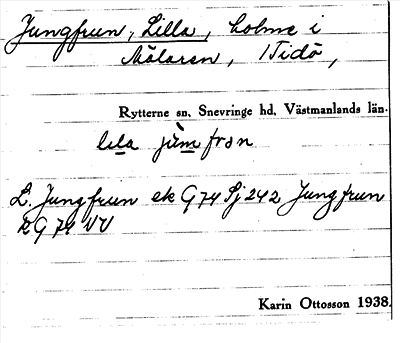 Jungfrun, Lilla, holme i
Mälaren, 1 Tidö,
Rytterne sn. Snevringe hd. Västmanlands län.
lila jùmfrɑn
L. Jungfrun ek G 74 Sj 242 Jungfrun
RG 74 VV
Karin Ottosson 1938.